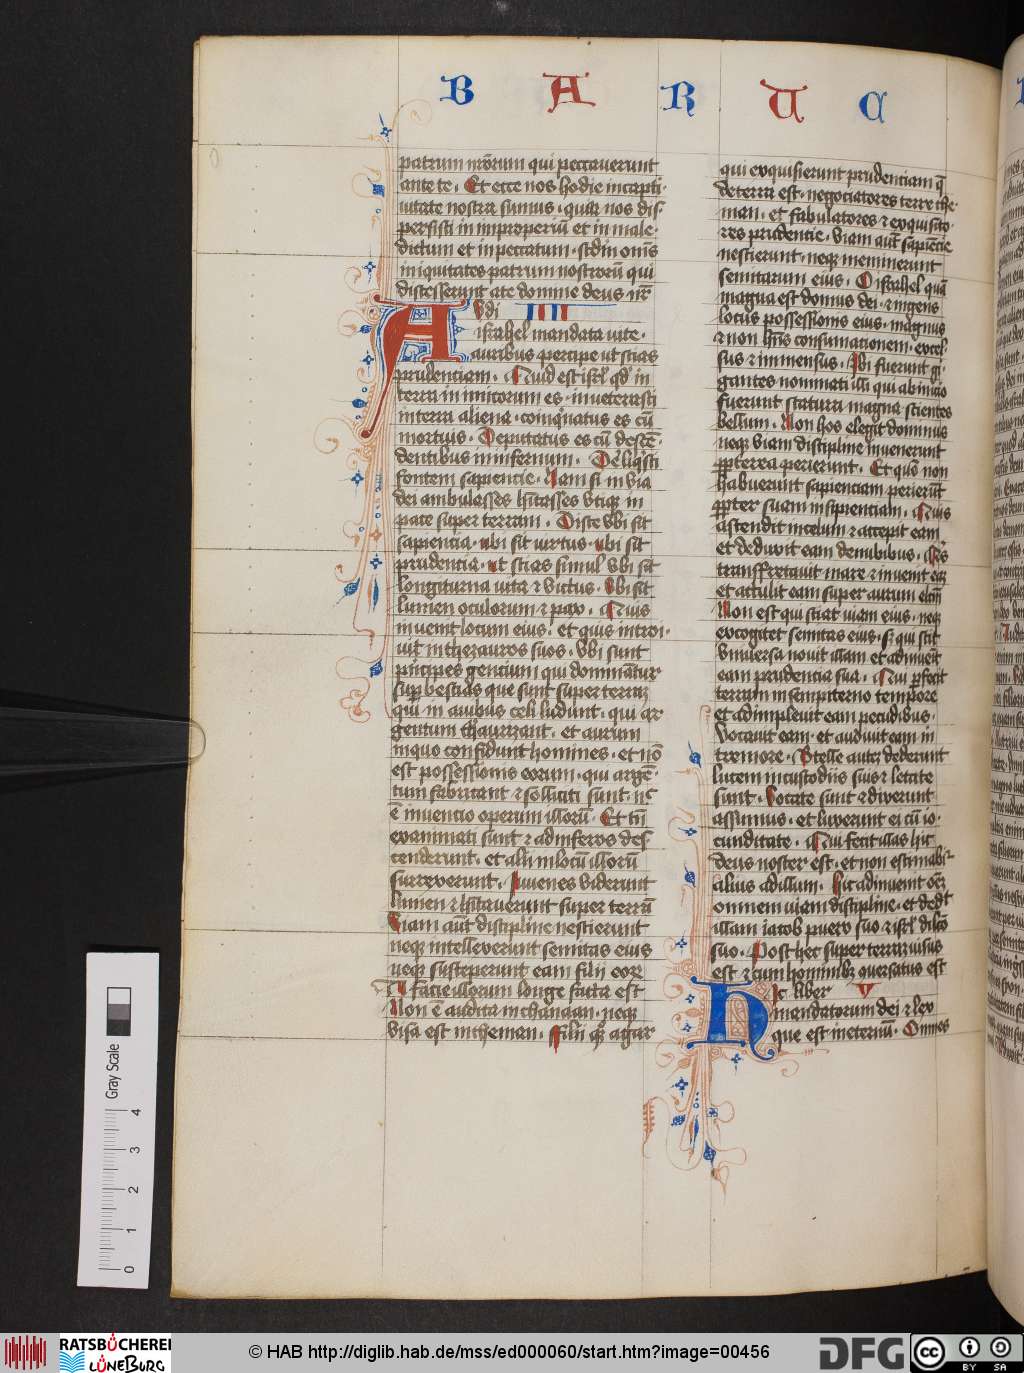 B A R U C
patrum nr̄orum qui peccauerunt
ante te . Et ecce nos hodie in capti
uitate nostra sumus . quia nos dis
persisti in improperiū et in male
dictum et in peccatum . scdm omīs
iniquitates patrum nostrorū qui
discesserunt a te domine deus nr̄
Vdi IIII
israhel mandata uite .
auribus percipe ut scias
prudentiam . Quid est isrl̄ qd̄ in
terra inimicorum es . inueterasti
in terra aliena . coinquinatus es cū
mortuis . Deputatus es cū descē
dentibus in infernum . Dereliqsti
fontem sapientie . Nam si in via
dei ambulasses hītasses vtiqꝫ in
pace super terram . Disce vbi sit
sapientia . ubi sit uirtus . ubi sit
prudentia . ut scias simul vbi sit
longiturna uita ⁊ victus . Vbi sit
lumen oculorum ⁊ pax . Quis
inuenit locum eius . et quis introi
uit in thezauros suos . vbi sunt
pn̄cipes gentium qui domināntur
sup̄ bestias que sunt super terraꝫ
qui in auibus celi ludunt . qui ar
gentum thaurizant . et aurum
in quo confidunt homines . et nō
est possessionis eorum . qui argē
tum fabricant ⁊ solliciti sunt . nc̄
ē inuentio operum illorū . Et tn̄
exaniati sunt ⁊ ad inferos des
cenderunt . et alij in locū illorū
surrexerunt . Iuuenes viderunt
lumen ⁊ hītauerunt super terrā
Viam aūt discipline nescierunt
neqꝫ intellexerunt semitas eius
neqꝫ susceperunt eam filij eorꝝ
A facie illorum longe facta est
Non ē audita in chanaan . neqꝫ
visa est in theman . filij qꝫ agar
qui exquisierunt prudentiam q̄
de terra est . negociatores terre the
man . et fabulatores ⁊ exquisito
res prudentie . viam aūt sapiētie
nescierunt neqꝫ meminerunt
semitarum eius . O israhel quā
magna est domus dei . ⁊ ingens
locus possessionis eius . magnus
⁊ non hn̄s consumationem . excel
sus ⁊ immensus . Ibi fuerunt gi
gantes nominati illi qui ab inicio
fuerunt statura magna scientes
bellum . Non hos elegit dominus
neqꝫ viam discipline inuenerunt
ꝓpterea perierunt . Et quō non
habuerunt sapienciam perierūt
ꝓpter suam insipientiam . Quis
ascendit in celum ⁊ accepit eam
et deduxit eam de nubibus . Qis
transfretauit mare ⁊ inuenit eaꝫ
et attulit eam super aurum elcm̄
Non est qui sciat uiam eius . neqꝫ
excogitet semitas eius . sꝫ qui scit
vniuersa nouit illam et adinueīt
eam prudentia sua . Qui ꝑfecit
terram in sempiterno tempore
et adimpleuit eam pecudibus .
Vocauit eam . et audiuit eam in
tremore . Stelle autꝫ dederunt
lumen in custodiis suis ⁊ letate
sunt . Vocate sunt ⁊ dixerunt
assumus . et luxerunt ei cū io
cunditate . Qui fecit illas hic
deus noster est . et non estimabit̄
alius ad illum . Hic adinuenit oēꝫ
omnem uiam discipline . et dedit
illam iacob puero suo ⁊ isrl̄ dilcō
suo . Post hec super terram uisus
est ⁊ cum hominibꝫ ꝯuersatus est
Ic liber V
mandatorum dei ⁊ lex
que est in eternū . Omnes
Gray Scale
0 1 2 3 4
RATSBÜCHEREI LÜNEBURG
© HAB http://diglib.hab.de/mss/ed000060/start.htm?image=00456
DFG
cc BY SA